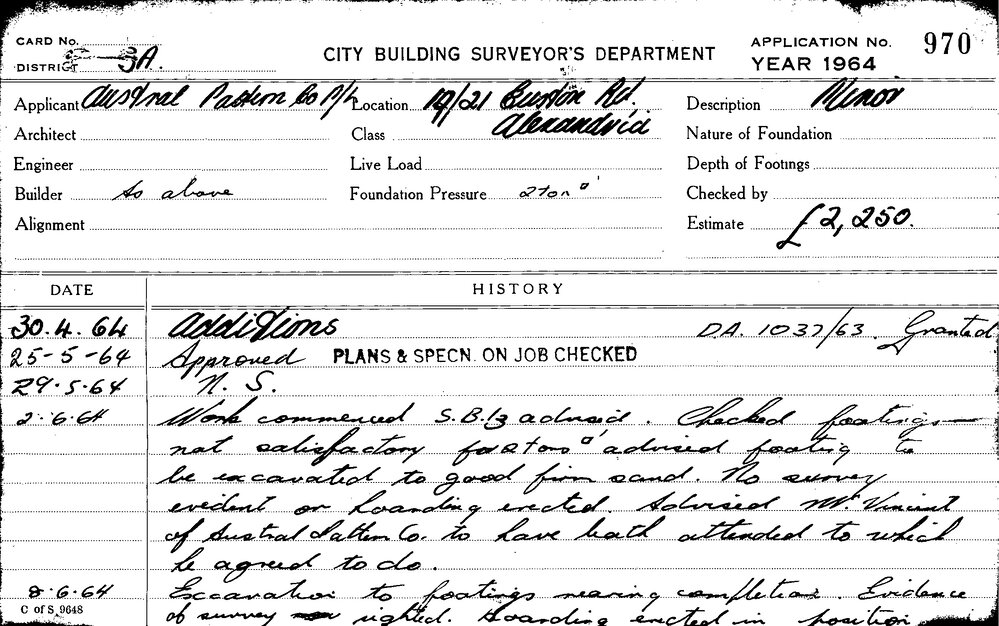 CARD No.
DISTRICT 3A.
CITY BUILDING SURVEYOR'S DEPARTMENT
APPLICATION No. 970
YEAR 1964
Applicant Austral Pattern Co P/L Location 19/21 Burton Rd. Description Minor
Alexandria
Architect Class Nature of Foundation
Engineer Live Load Depth of Footings
Builder As above Foundation Pressure 2 ton □' Checked by
Alignment Estimate £2,250.
DATE HISTORY
30.4.64 Additions D.A. 1037/63. Granted
25-5-64 Approved PLANS & SPECN. ON JOB CHECKED
29.5.64 N. S.
2.6.64 Work commenced S.B.13 advised. Checked footings—
not satisfactory for 2 tons □' advised footing to
be excavated to good firm sand. No survey
evident or hoarding erected. Advised Mr. Vincent
of Austral Pattern Co. to have both attended to which
he agreed to do.
8.6.64 Excavation to footings nearing completion. Evidence
C of S 9648
of survey sighted. Hoarding erected in position